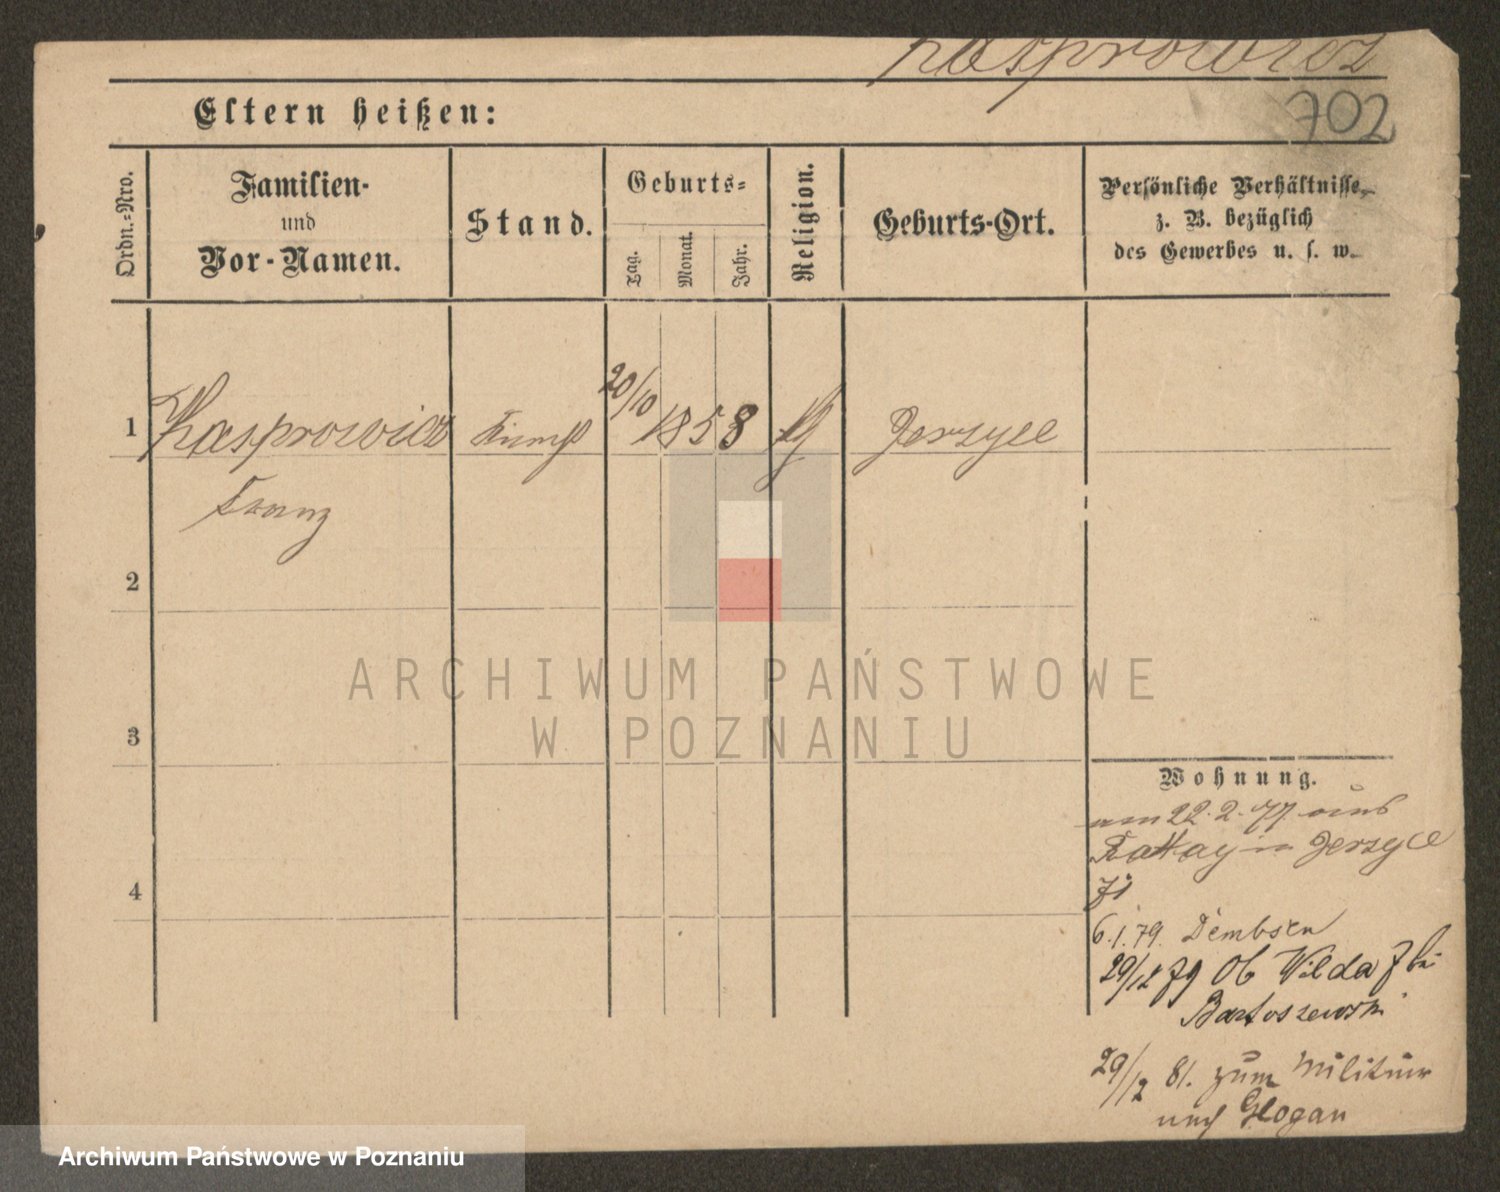 Kasprowicz
702
Eltern heißen:
Ordn.-Nro.
Familien-
und
Vor-Namen.
Stand.
Geburts-
Tag.
Monat.
Jahr.
Religion.
Geburts-Ort.
Persönliche Verhältnisse,
z. B. bezüglich
des Gewerbes u. s. w.
1 Kasprowicz 20/10 1858 Jerzyce
Franz
2
3
4
Wohnung.
am 22.2.77 aus
Rattay in Jerzyce
6.1.79. Dembsen
29/12 79 Ob Wilda 7 bei
Bartoszewski
29/12 81. zum Militair
nach Glogau
ARCHIWUM PAŃSTWOWE
W POZNANIU
Archiwum Państwowe w Poznaniu